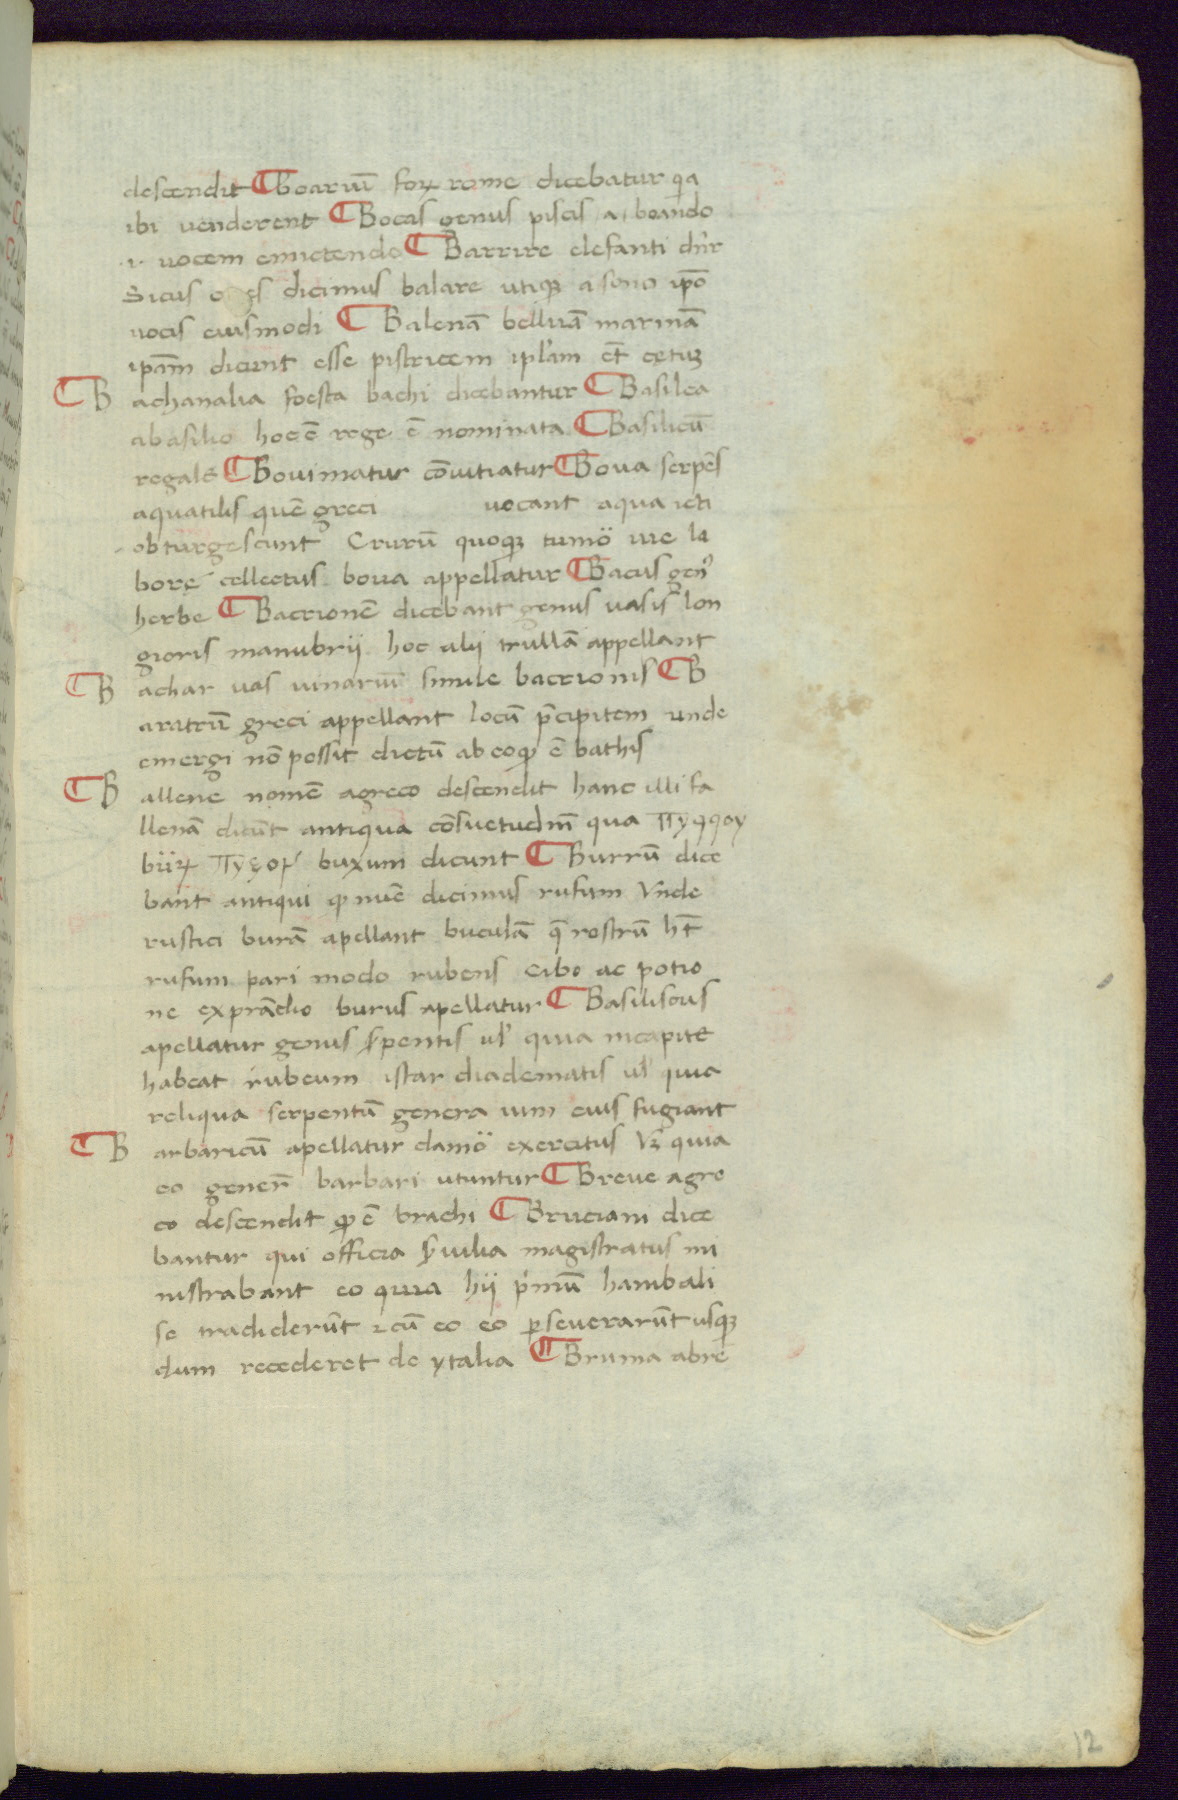 descendit ¶ Boariū foꝝ rome dicebatur qia
ibi venderent ¶ Bocas genus piscis a boando
.i. uocem emictendo ¶ Barrire elefanti dn̄r
Sicus dicimus balare utiqꝫ a sono ipo
uocis eiusmodi ¶ Balenā belluā marinā
ipam̄ dicunt esse pistricem ipsam et̄ cętuꝫ
¶ B achanalia foesta bachi dicebantur ¶ Basilea
abasilio hoc ē rege ē nominata ¶ Basilicū
regale ¶ Bouimatur cōuitiatur ¶ Boua serpēs
aquatilis quē greci uocant aqua icti
obturgescunt Crurū quoqꝫ tumoͥ uie la
borę collectus boua appellatur ¶ Bacus genꝰ
herbe ¶ Bacrionē dicebant genus vasis lon
gioris manubrii hoc alij trullā appellant
¶ B achar uas uinariū simile bacrionis ¶ B
aratrū greci appellant locū p̄cipitem unde
emergi nō possit dictū ab eo qꝫ ē bathis
¶ B allene nomē agreco descendit hanc illi fa
llenā dicūt antiqua cōsuetudīē qua πυρρου
būꝝ πυξορ buxum dicunt ¶ Burrū dice
bant antiqui qꝫ nūc dicimus rufum Vnde
rustici burā apellant buculā q̄ rostrū ht̄
rufum pari modo rubens cibo ac potio
ne exprādio burus apellatur ¶ Basiliscus
apellatur genus s̄pentis ul' quia incapite
habeat rubeum istar diadematis ul' quia
reliqua serpentū genera uim eius fugiant
¶ B arbaricū apellatur clamoͥ exercitus Vꝫ quia
eo gener̄ barbari utuntur ¶ Breue agre
co descendit qꝫ ē brachi ¶ Bruciani dice
bantur qui officia s̄uilia magistratus mi
nistrabant eo quia hij p̄mū hanibali
se tradiderūt ⁊ cū eo eo ꝑseuerarūt usqꝫ
dum recederet de ytalia ¶ Bruma abre
12